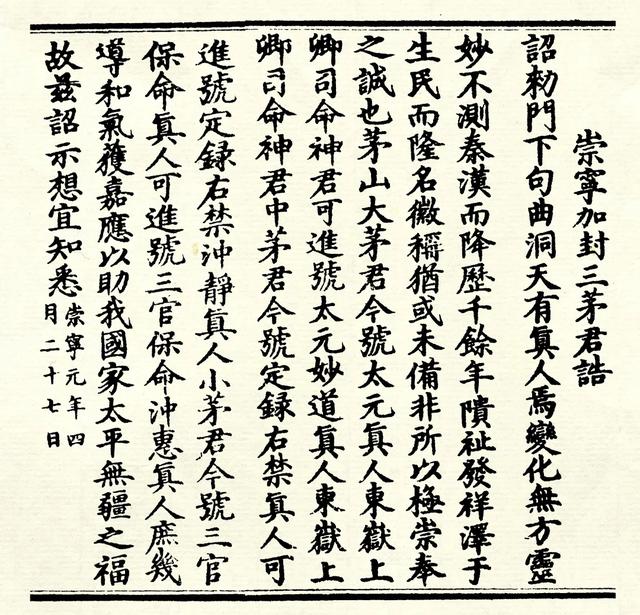 崇寧加封三茅君誥
詔勑門下句曲洞天有真人焉變化無方靈
妙不測秦漢而降歷千餘年隤祉發祥澤于
生民而隆名徽稱猶或未備非所以極崇奉
之誠也茅山大茅君今號太元真人東嶽上
卿司命神君可進號太元妙道真人東嶽上
卿司命神君中茅君今號定録右禁真人可
進號定録右禁沖靜真人小茅君今號三官
保命真人可進號三官保命沖惠真人庶幾
導和氣獲嘉應以助我國家太平無疆之福
故茲詔示想宜知悉
崇寧元年四
月二十七日